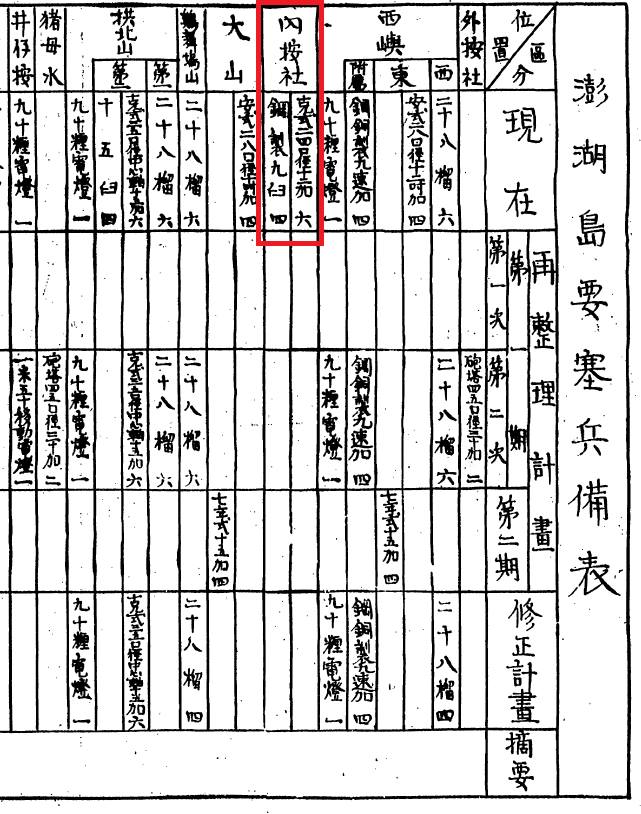 澎湖島要塞兵備表
區分
位置
現在
再整理計畫
第一期
第一次
第二次
第二期
修正計畫
摘要
外按社
砲塔四五口徑三十加 二
西嶼
西
二十八榴 六
二十八榴 六
二十八榴 四
東
加 四
七年式十五加 四
附屬
鋼銅製九速加 四
鋼銅製九速加 四
鋼銅製九速加 四
九十糎電燈 一
九十糎電燈 一
九十糎電燈 一
內按社
克式二四口徑十二加 六
鋼製九臼 四
大山
加 四
七年式十五加 四
山
二十八榴 六
二十八榴 六
二十八榴 四
拱北山
第一
二十八榴 六
二十八榴 六
第二
克式三五口徑中心軸十五加 六
克式三五口徑中心軸十五加 六
克式三五口徑中心軸十五加 六
十五臼 四
九十糎電燈 一
九十糎電燈 一
九十糎電燈 一
豬母水
砲塔四五口徑三十加 二
井仔按
九十糎電燈 一
一米五十移動電燈 一